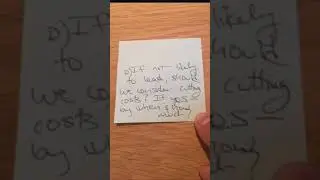 D) If not likely
to work, should
we consider cutting
costs? If yes —
by when & how
much?